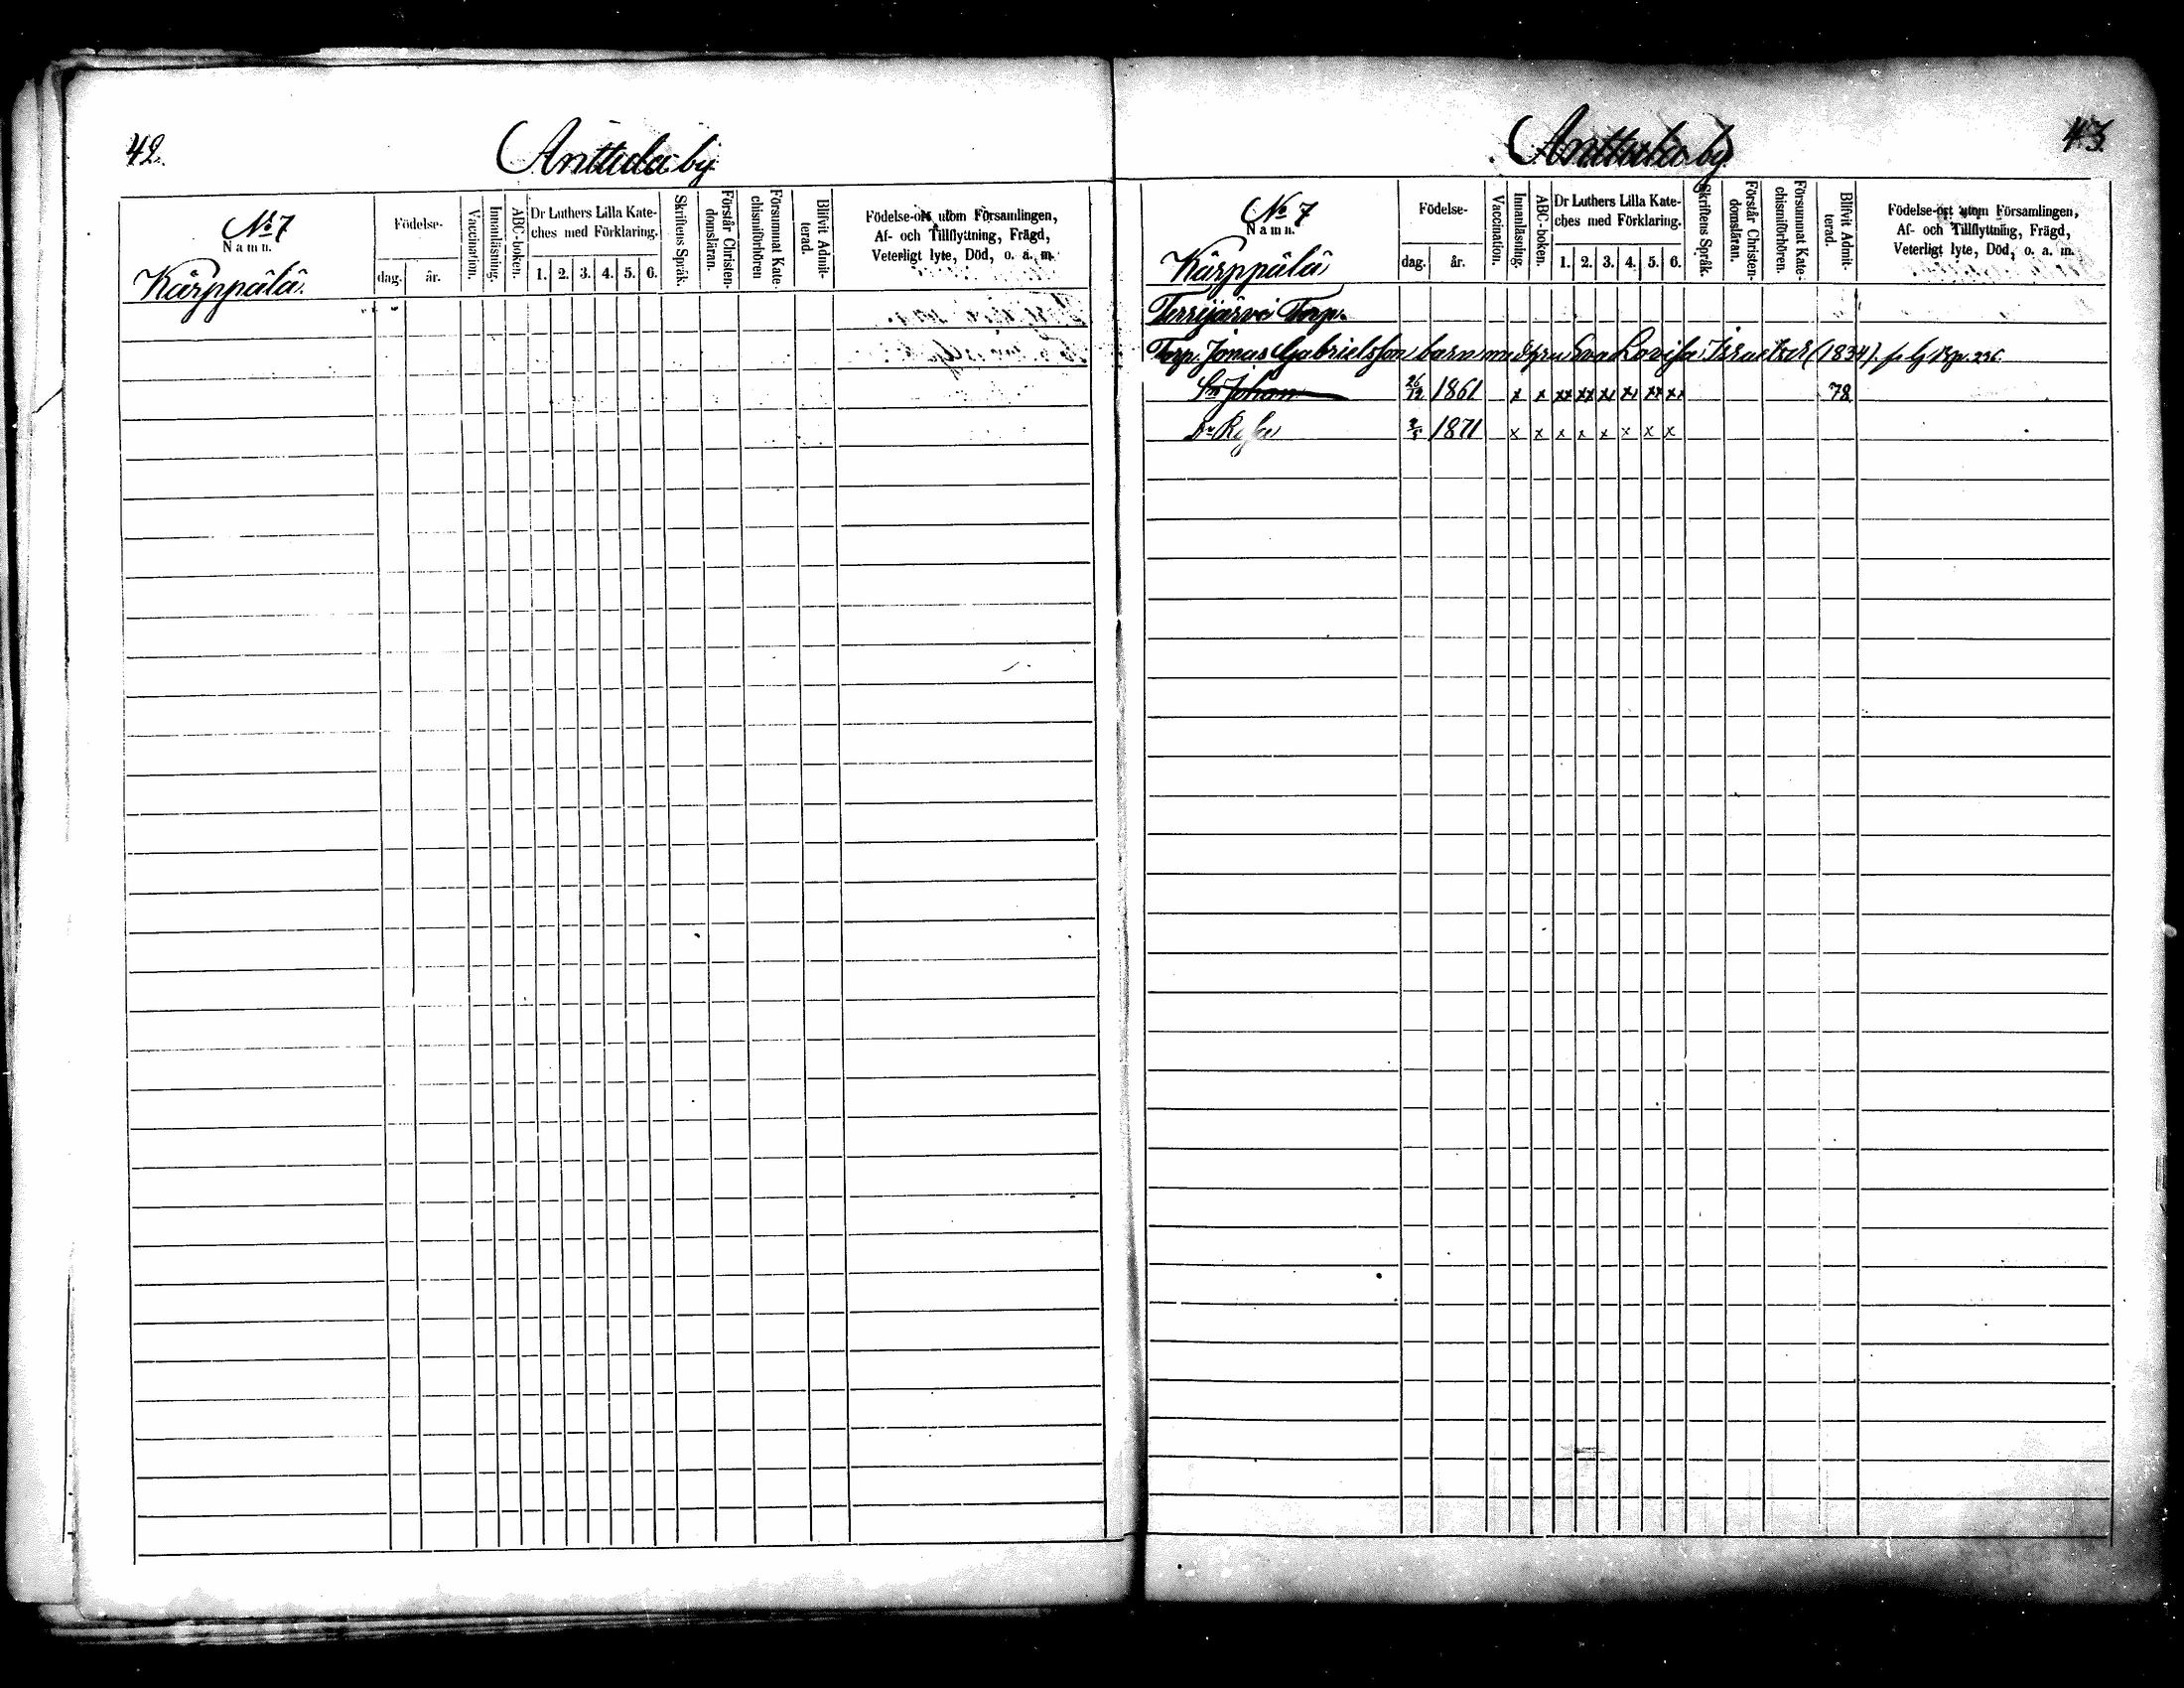 42.
Anttila by
No 7
Namn.
Kärppälä.
Födelse-
dag.
år.
Vaccination.
Innanläsning.
ABC-boken.
Dr Luthers Lilla Kate-
ches med Förklaring.
1. 2. 3. 4. 5. 6.
Skriftens Språk.
Förstår Christen-
domsläran.
Försummat Kate-
chismiförhören
Blifvit Admit-
terad.
Födelse-ort utom Församlingen,
Af- och Tillflyttning, Frägd,
Veterligt lyte, Död, o. a. m.
43.
Anttila by
No 7
Namn.
Kärppälä
Födelse-
dag.
år.
Vaccination.
Innanläsning.
ABC-boken.
Dr Luthers Lilla Kate-
ches med Förklaring.
1. 2. 3. 4. 5. 6.
Skriftens Språk.
Förstår Christen-
domsläran.
Försummat Kate-
chismiförhören.
Blifvit Admit-
terad.
Födelse-ort utom Församlingen,
Af- och Tillflyttning, Frägd,
Veterligt lyte, Död, o. a. m.
Terrijärvi Torp.
Torp. Jonas Gabrielsson barn med Eva Lovisa (1834)
Sn Johan 26/12 1861 x x xx xx xx xx xx xx 78
Dr 1871 x x x x x x x x